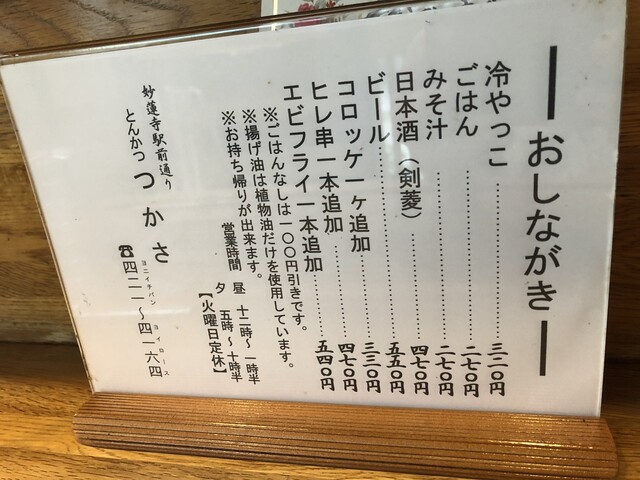 ーおしながきー
冷やっこ…………三二〇円
ごはん…………二七〇円
みそ汁…………二七〇円
日本酒（剣菱）…………四七〇円
ビール…………五五〇円
コロッケ一ヶ追加…………三三〇円
ヒレ串一本追加…………四七〇円
エビフライ一本追加…………五四〇円
※ごはんなしは一〇〇円引きです。
※揚げ油は植物油だけを使用しています。
※お持ち帰りが出来ます。
営業時間 昼 十二時～一時半
夕 五時～十時半
【火曜日定休】
妙蓮寺駅前通り
とんかつ つかさ
ヨニイチバン ヨイロース
☎四二一～四一六四